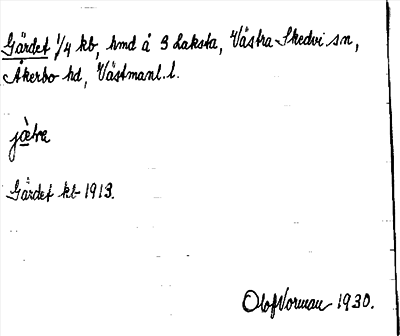 Gärdet 1/4 kb, hmd å 3 Laksta, Västra-Skedvi sn,
Åkerbo hd, Västmanl. l.
Gärdet kb 1913.
Olof Vorman 1930.